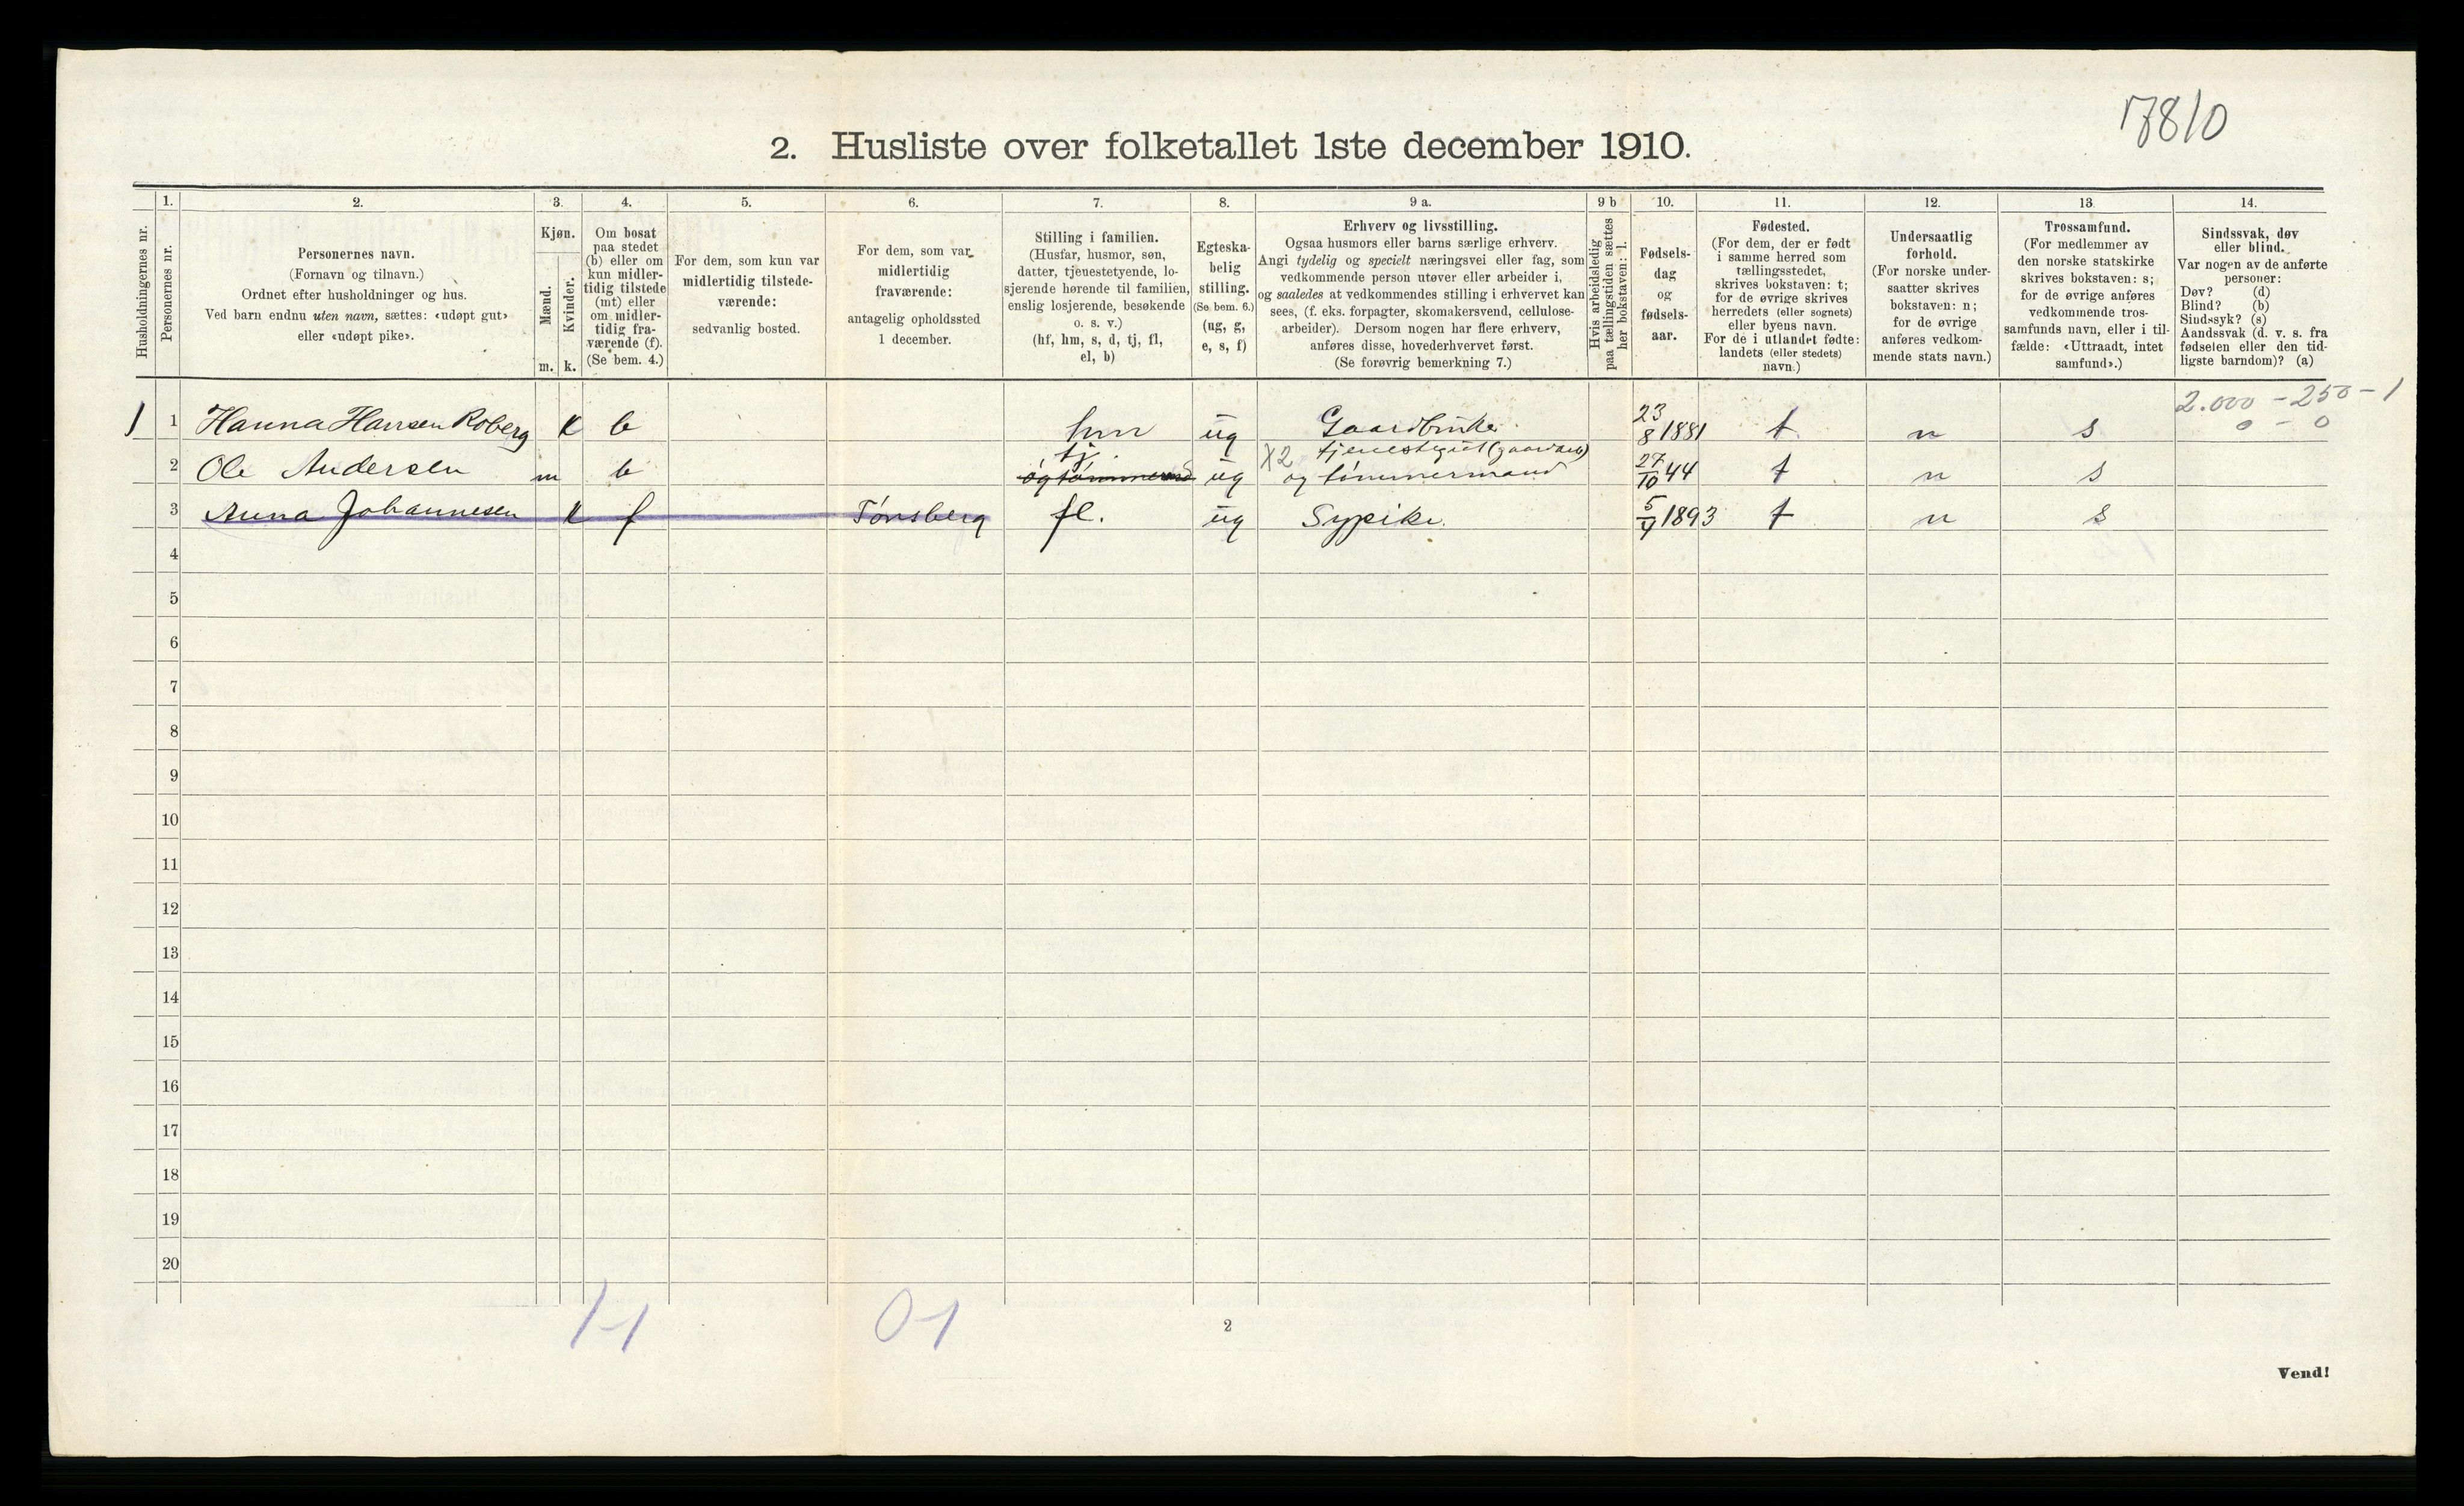 17810
2. Husliste over folketallet 1ste december 1910.
Husholdningernes nr.
1.
Personernes nr.
2.
Personernes navn.
(Fornavn og tilnavn.)
Ordnet efter husholdninger og hus.
Ved barn endnu uten navn, sættes: «udøpt gut»
eller «udøpt pike».
3.
Kjøn.
Mænd.
Kvinder.
m. k.
4.
Om bosat
paa stedet
(b) eller om
kun midler-
tidig tilstede
(mt) eller
om midler-
tidig fra-
værende (f).
(Se bem. 4.)
5.
For dem, som kun var
midlertidig tilstede-
værende:
sedvanlig bosted.
6.
For dem, som var
midlertidig
fraværende:
antagelig opholdssted
1 december.
7.
Stilling i familien.
(Husfar, husmor, søn,
datter, tjenestetyende, lo-
sjerende hørende til familien,
enslig losjerende, besøkende
o. s. v.)
(hf, hm, s, d, tj, fl,
el, b)
8.
Egteska-
belig
stilling.
(Se bem. 6.)
(ug, g,
e, s, f)
9 a.
Erhverv og livsstilling.
Ogsaa husmors eller barns særlige erhverv.
Angi tydelig og specielt næringsvei eller fag, som
vedkommende person utøver eller arbeider i,
og saaledes at vedkommendes stilling i erhvervet kan
sees, (f. eks. forpagter, skomakersvend, cellulose-
arbeider). Dersom nogen har flere erhverv,
anføres disse, hovederhvervet først.
(Se forøvrig bemerkning 7.)
9 b
Hvis arbeidsledig
paa tællingstiden sættes
her bokstaven: l.
10.
Fødsels-
dag
og
fødsels-
aar.
11.
Fødested.
(For dem, der er født
i samme herred som
tællingsstedet,
skrives bokstaven: t;
for de øvrige skrives
herredets (eller sognets)
eller byens navn.
For de i utlandet fødte:
landets (eller stedets)
navn.)
12.
Undersaatlig
forhold.
(For norske under-
saatter skrives
bokstaven: n;
for de øvrige
anføres vedkom-
mende stats navn.)
13.
Trossamfund.
(For medlemmer av
den norske statskirke
skrives bokstaven: s;
for de øvrige anføres
vedkommende tros-
samfunds navn, eller i til-
fælde: «Uttraadt, intet
samfund».)
14.
Sindssvak, døv
eller blind.
Var nogen av de anførte
personer:
Døv? (d)
Blind? (b)
Sindssyk? (s)
Aandssvak (d. v. s. fra
fødselen eller den tid-
ligste barndom)? (a)
2.000 - 250 - 1
0 - 0
1 1 Hanna Hansen Roberg k b hm ug Gaardbruker 23/8 1881 t n s
tj. X2 tjenestegut (gaardarb)
2 Ole Andersen m b og tømmermand ug og tømmermand 27/10 44 t n s
3 Anna Johannesen k f Tønsberg fl. ug Sypike. 5/4 1893 t n s
4
5
6
7
8
9
10
11
12
13
14
15
16
17
18
19
20
1-1
0-1
2
Vend!